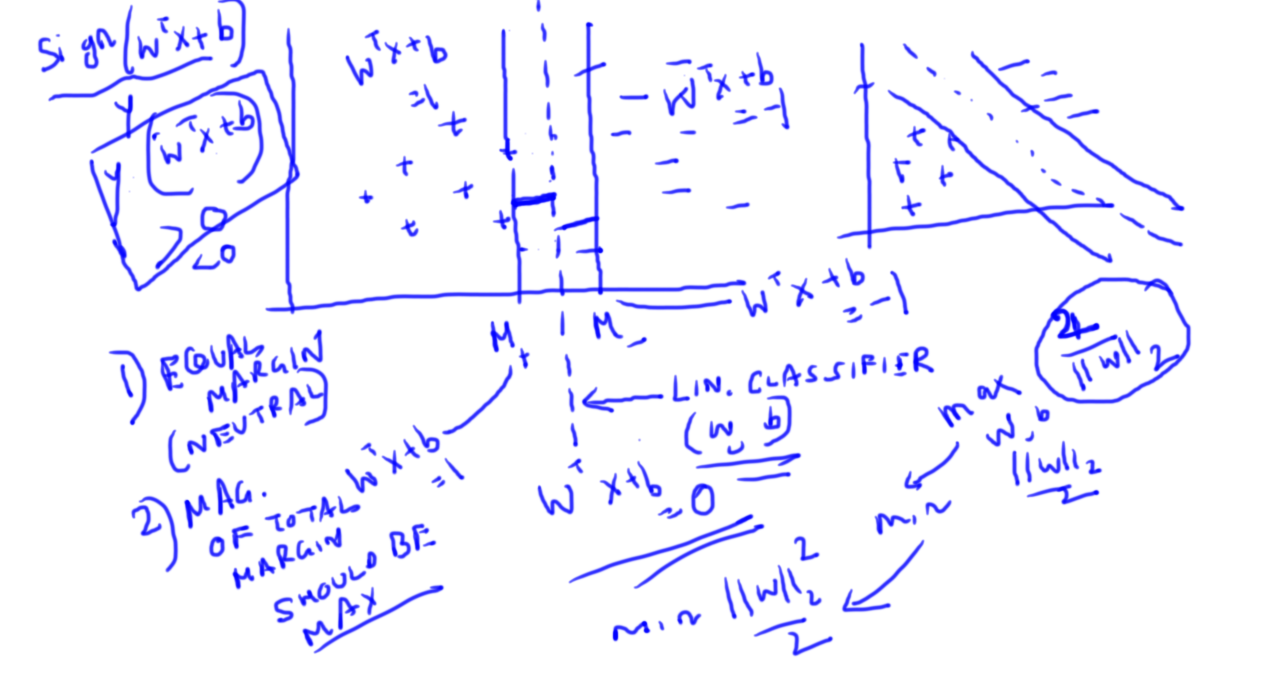 Sign(wᵀx+b)
y (wᵀx+b)
y
> 0
< 0
wᵀx+b
=1
wᵀx+b
=-1
wᵀx+b
=-1
M₊ M₋
1) EQUAL
MARGIN
(NEUTRAL)
2) MAG.
OF TOTAL
MARGIN
SHOULD BE
MAX
wᵀx+b
=1
LIN. CLASSIFIER
(w, b)
wᵀx+b
=0
max 2/||w||₂
w,b
min ||w||₂/2
min ||w||₂²/2